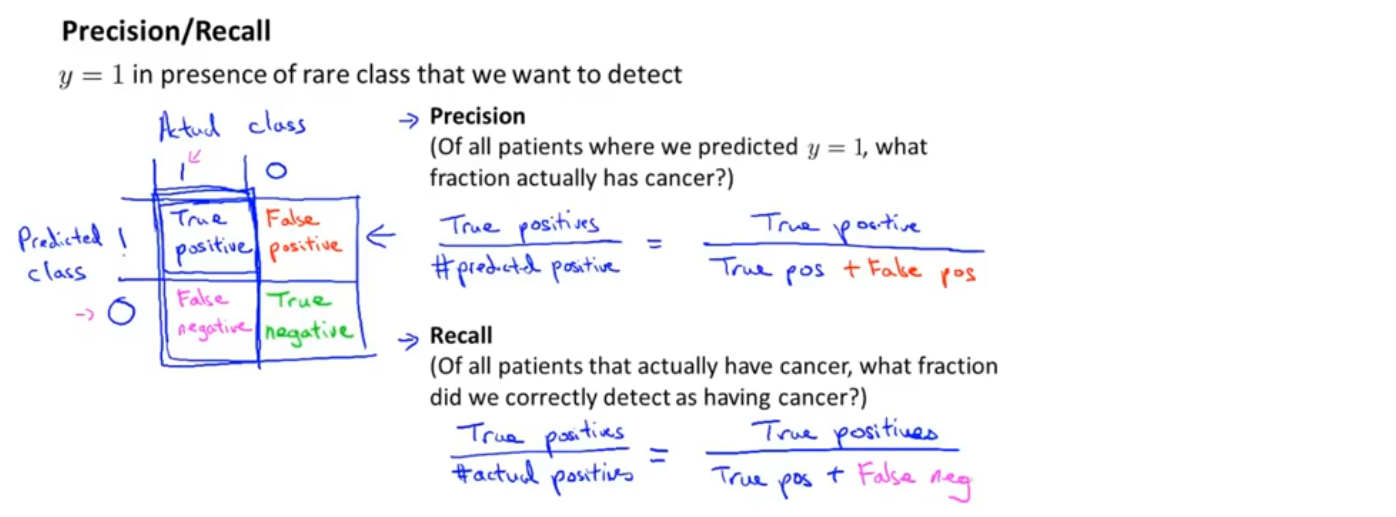 Precision/Recall
y = 1 in presence of rare class that we want to detect
Actual class
1 0
Predicted class
1
True positive
False positive
0
False negative
True negative
→ Precision
(Of all patients where we predicted y = 1, what
fraction actually has cancer?)
True positives / #predicted positive = True positive / True pos + False pos
→ Recall
(Of all patients that actually have cancer, what fraction
did we correctly detect as having cancer?)
True positives / #actual positives = True positives / True pos + False neg